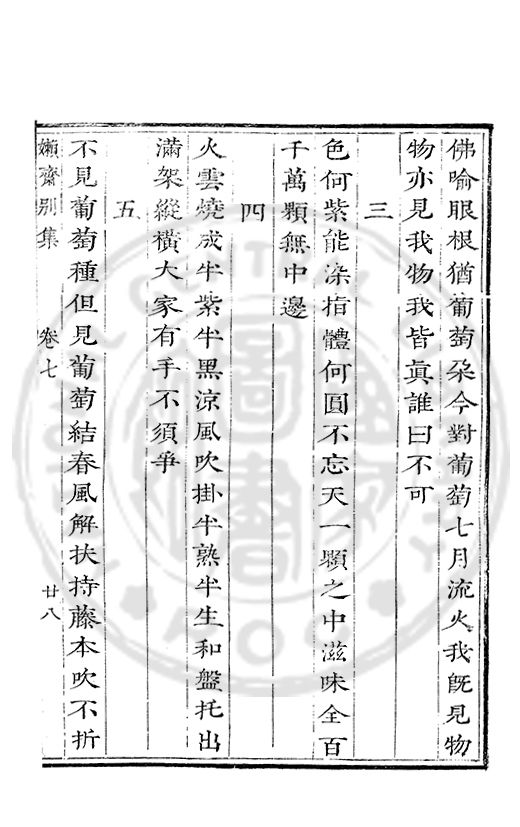 佛喻眼根猶葡萄朶今對葡萄七月流火我旣見物
物亦見我物我皆眞誰曰不可
三
色何紫能染指體何圓不忘天一顆之中滋味全百
千萬顆無中邊
四
火雲燒成半紫半黑涼風吹掛半熟半生和盤托出
滿架縱橫大家有手不須爭
五
不見葡萄種但見葡萄結春風解扶持藤本吹不折
嬾齋別集 卷七 廿八